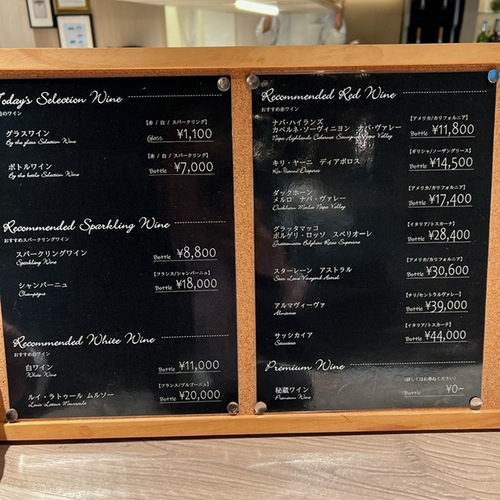 Today's Selection Wine
のワイン
[赤 / 白 / スパークリング]
グラスワイン
By the glass Selection Wine
Glass ¥1,100
[赤 / 白 / スパークリング]
ボトルワイン
By the bottle Selection Wine
Bottle ¥7,000
Recommended Sparkling Wine
おすすめスパークリングワイン
スパークリングワイン
Sparkling Wine
Bottle ¥8,800
[フランス/シャンパーニュ]
シャンパーニュ
Champagne
Bottle ¥18,000
Recommended White Wine
おすすめ白ワイン
白ワイン
White Wine
Bottle ¥11,000
[フランス/ブルゴーニュ]
ルイ・ラトゥール ムルソー
Louis Latour Meursault
Bottle ¥20,000
Recommended Red Wine
おすすめ赤ワイン
[アメリカ/カリフォルニア]
ナパ・ハイランズ
カベルネ・ソーヴィニヨン ナパ・ヴァレー
Napa Highlands Cabernet Sauvignon Napa Valley
Bottle ¥11,800
[ギリシャ/ノーザングリース]
キリ・ヤーニ ディアポロス
Bottle ¥14,500
[アメリカ/カリフォルニア]
ダックホーン
メルロ ナパ・ヴァレー
Duckhorn Merlot Napa Valley
Bottle ¥17,400
[イタリア/トスカーナ]
グラッタマッコ
ボルゲリ・ロッソ スペリオーレ
Grattamacco Bolgheri Rosso Superiore
Bottle ¥28,400
[アメリカ/カリフォルニア]
スターレーン アストラル
Star Lane Vineyard Astral
Bottle ¥30,600
[チリ/セントラルヴァレー]
アルマヴィーヴァ
Almaviva
Bottle ¥39,000
[イタリア/トスカーナ]
サッシカイア
Sassicaia
Bottle ¥44,000
Premium Wine
(詳しくはお尋ねください)
秘蔵ワイン
Premium Wine
Bottle ¥0~